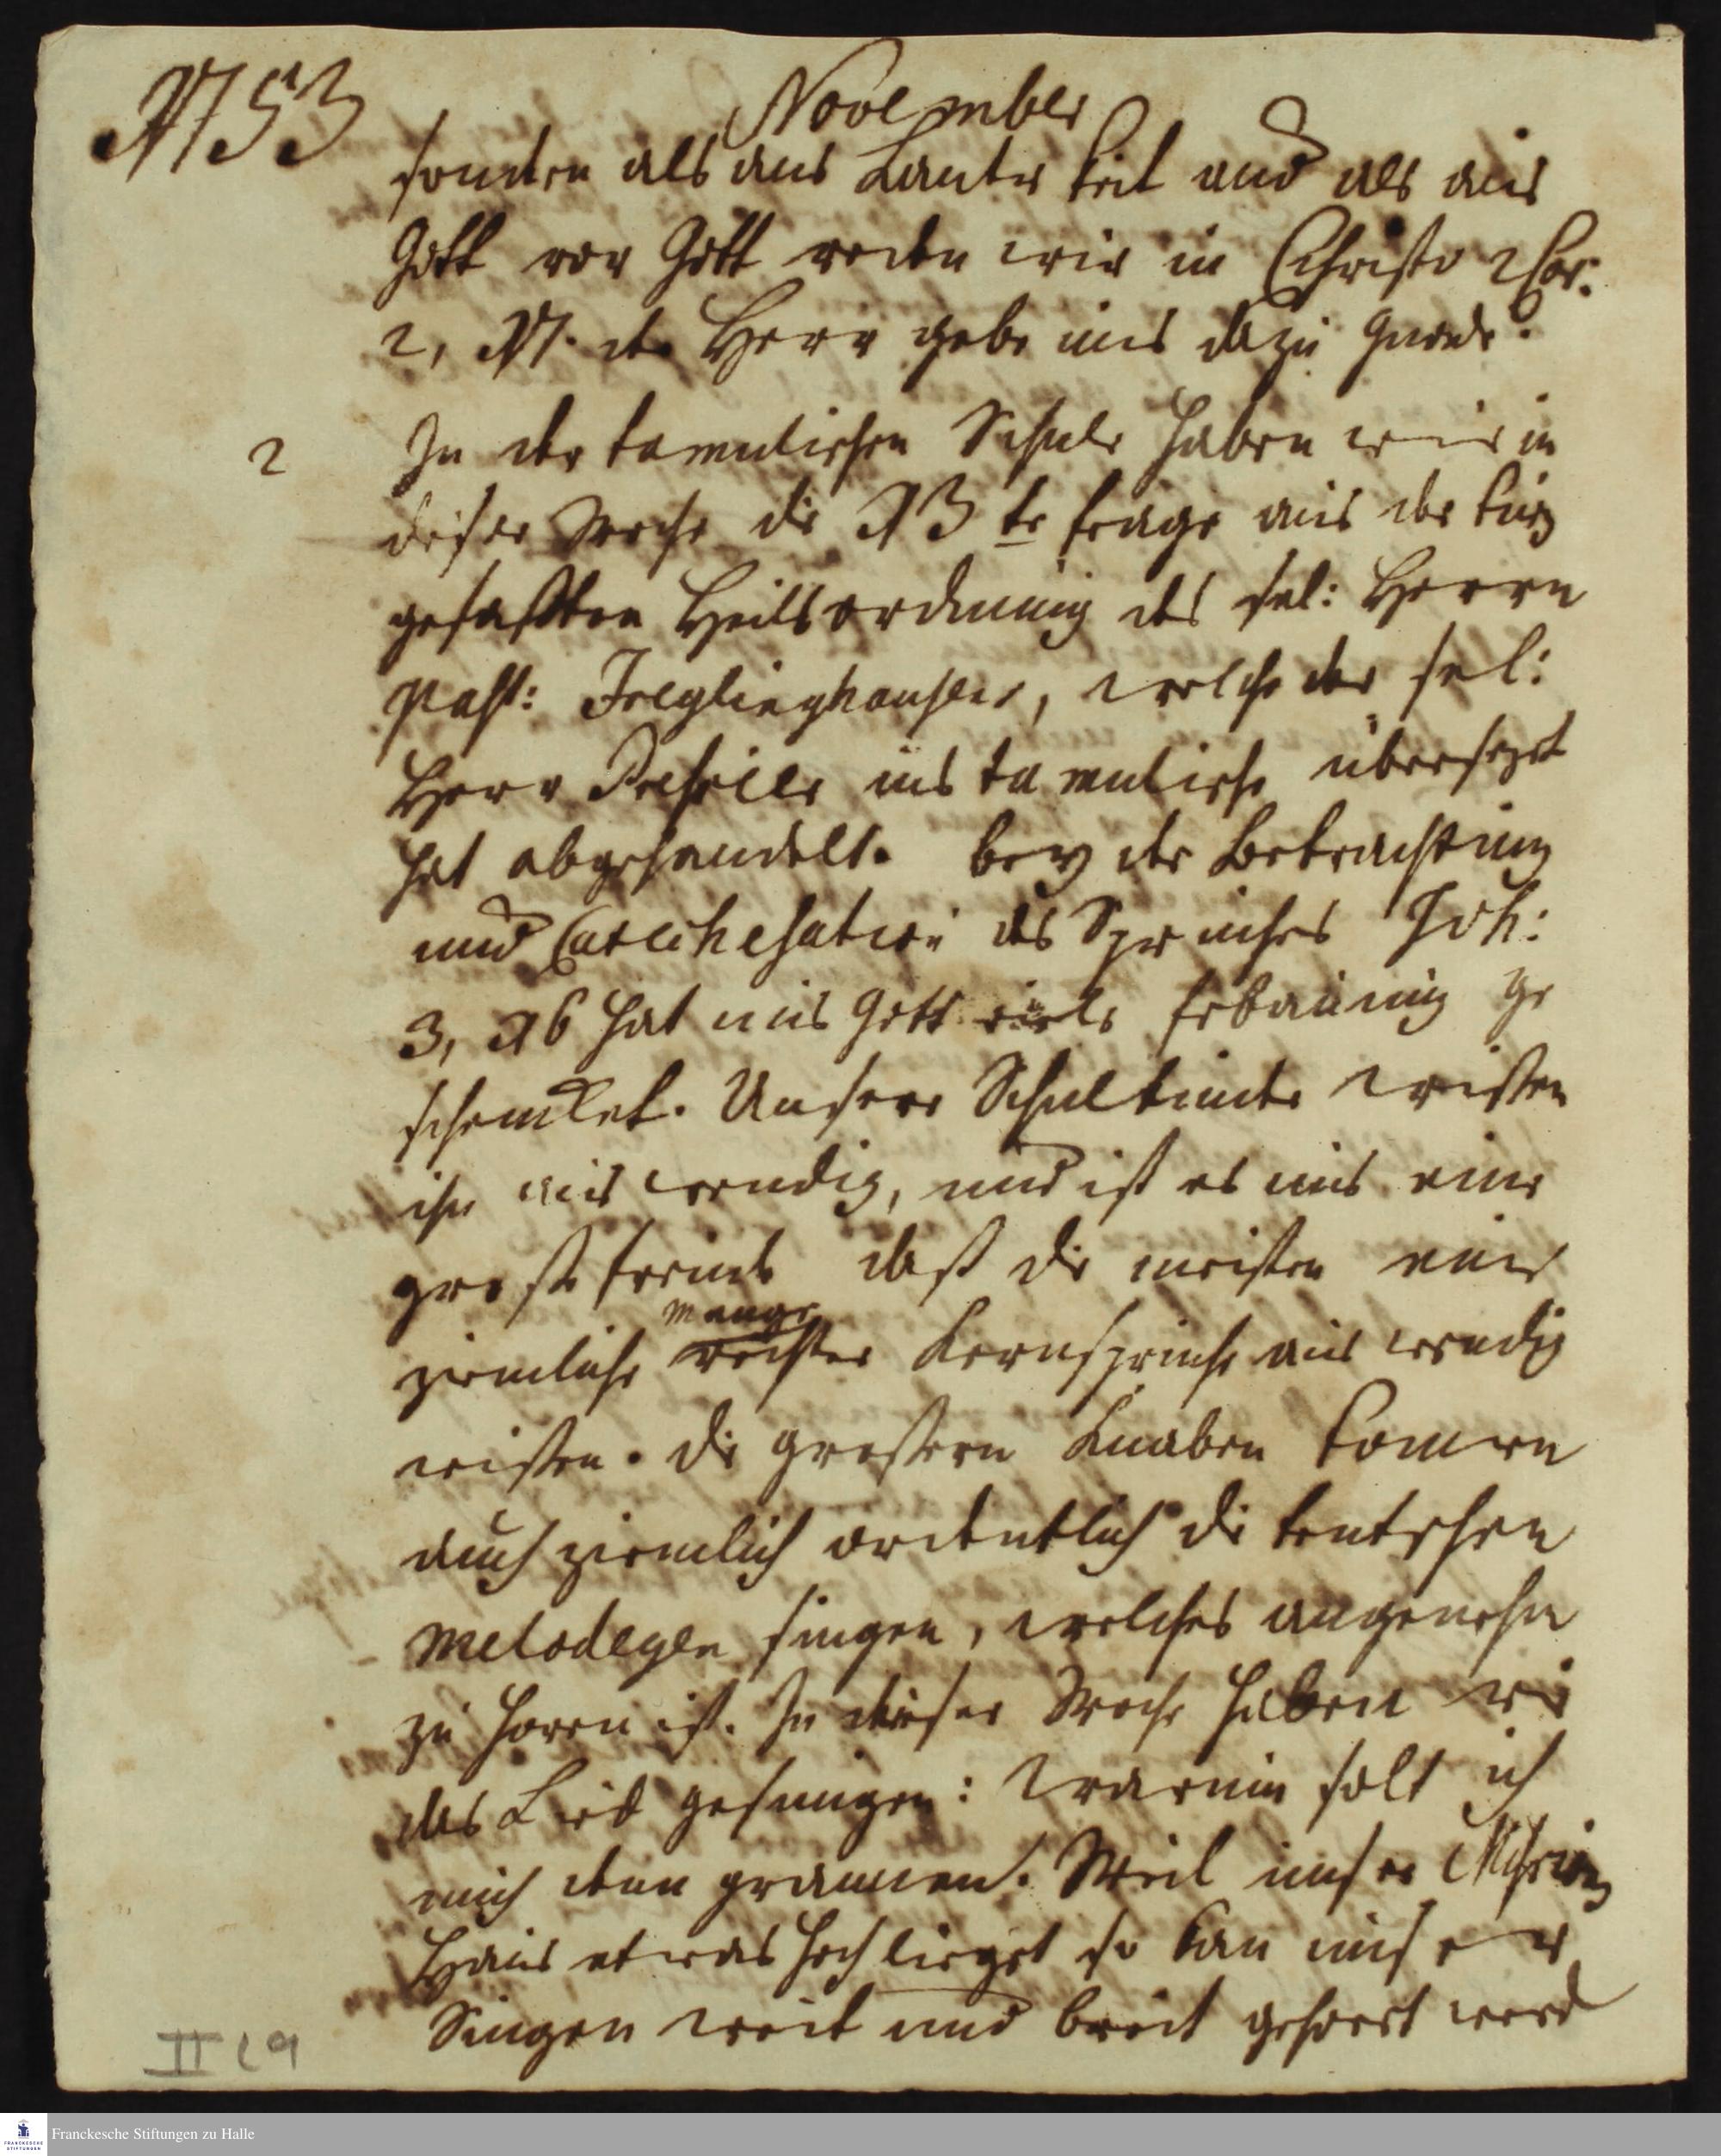 1753
November
sondern als aus Lauterkeit und als aus
Gott vor Gott reden wir in Christo 2 Cor:
2, 17. der Herr gebe uns dazu Gnade.
2
In der tamulischen Schule haben wir in
dieser Woche die 13te frage aus der kurz
gefaßten Heilsordnung des sel: Herrn
Past: Freylinghausens, welche der sel:
Herr Preßier ins tamulische übersezet
hat abgehandelt. bey der Betrachtung
und Catechesation des Spruches Joh:
3, 16 hat uns Gott viele Erbauung ge
schencket. Unsere Schulkinder wissen
ihn auswendig, und ist es uns eine
große freude daß die meisten eine
menge
ziemliche rechter Kernspruche auswendig
wissen. die großern Knaben konnen
auch ziemlich ordentlich die teutschen
Melodeyen singen, welches angenehm
zu horen ist. In dieser Woche haben wir
das Lied gesungen: Warum solt ich
mich denn gramen. Weil unser Mißions
Haus etwas hoch lieget so kan unser
Singen weit und breit gehoert werd
II C 9
Franckesche Stiftungen zu Halle
FRANCKESCHE
STIFTUNGEN